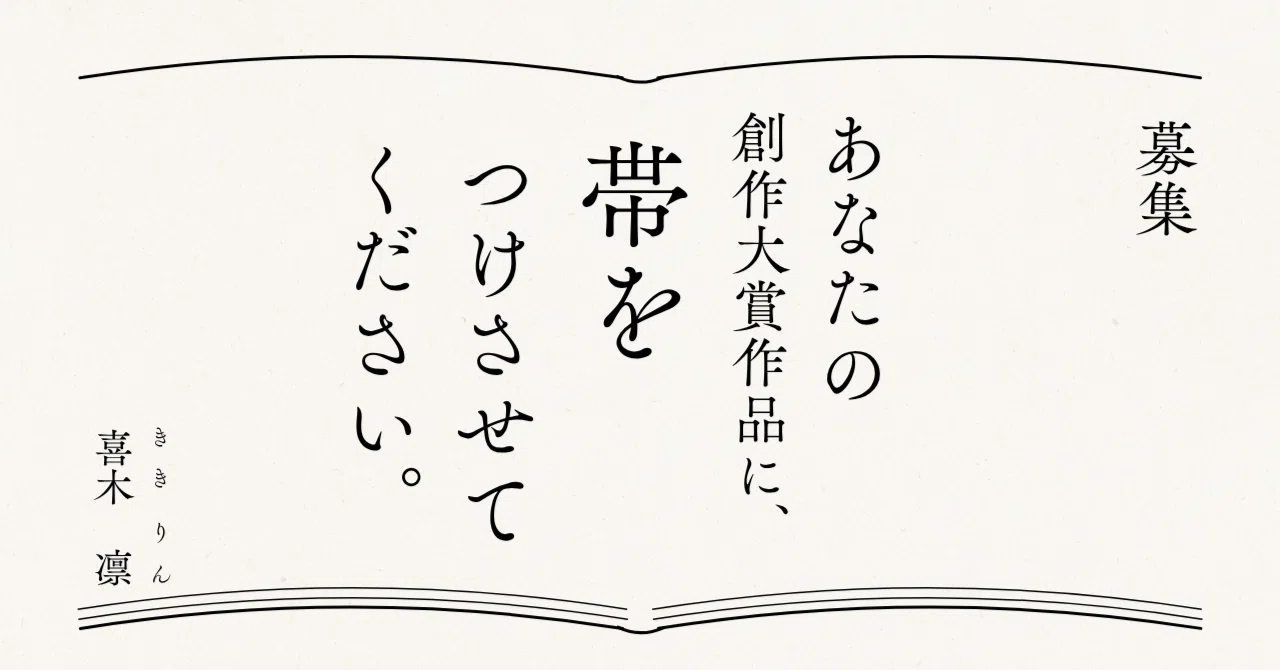 募集
あなたの
創作大賞作品に、
帯を
つけさせて
ください。
きき りん
喜木 凛